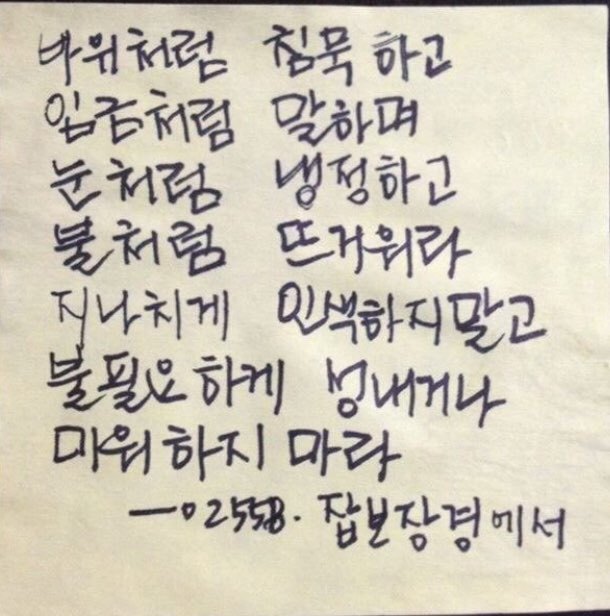 바위처럼 침묵 하고
임금처럼 말하며
눈처럼 냉정하고
불처럼 뜨거워라
지나치게 인색하지말고
불필요하게 성내거나
미워하지 마라
잡보장경에서